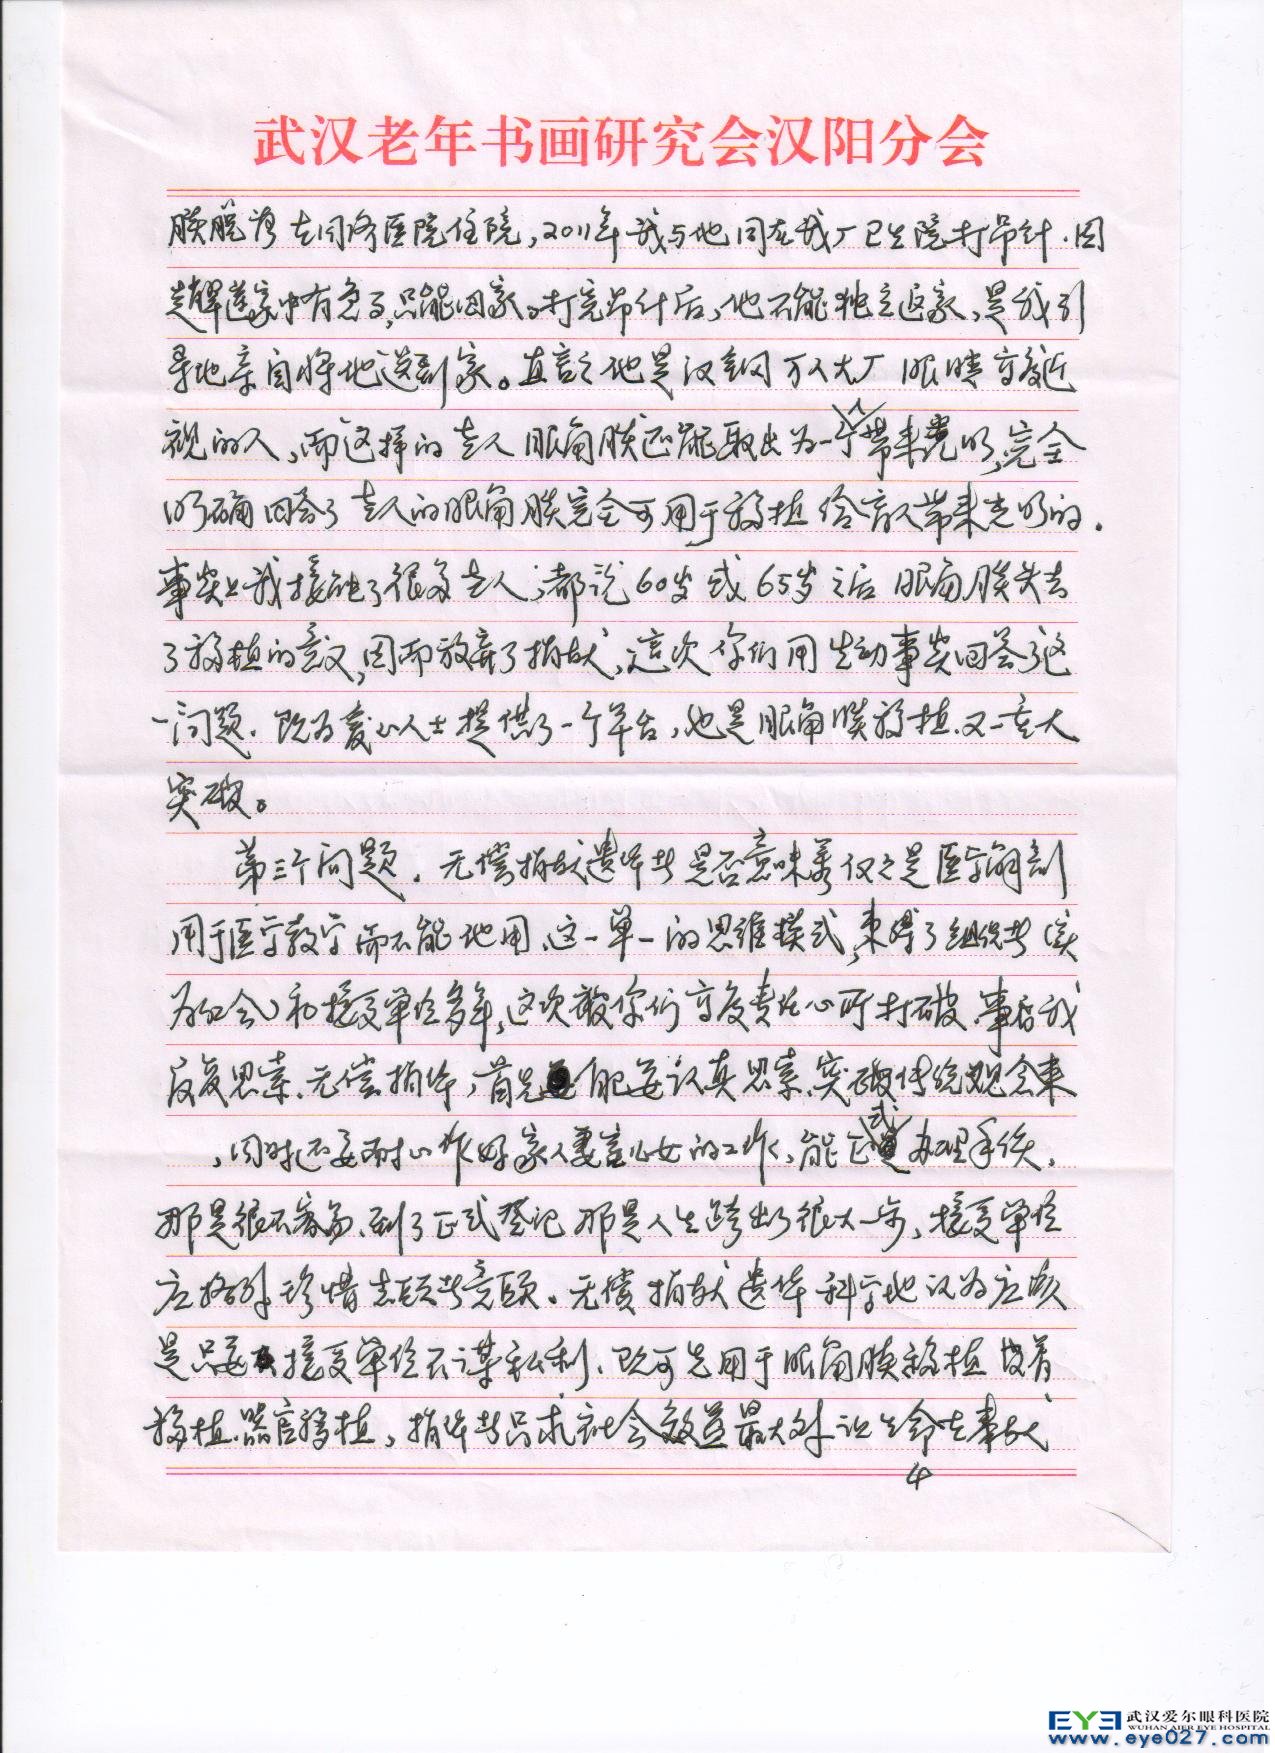 武汉老年书画研究会汉阳分会
膜脱落去同济医院住院，2011年我与他同在我厂卫生院打吊针．因
家中有急事，只能回家。打完吊针后，他不能独立返家，是我引
导他亲自将他送到家。直言之他是汉钢万人大厂眼睛高度近
视的人，而这样的老人眼角膜还能取出为一个人带来光明，完全
明确回答了老人的眼角膜完全可用于移植给盲人带来光明的．
事实上我接触了很多老人，都说60岁或65岁之后眼角膜失去
了移植的意义，因而放弃了捐献，这次你们用生动事实回答了这
一问题．既为爱心人士提供了一个平台，也是眼角膜移植又一重大
突破。
第三个问题．无偿捐献遗体者是否意味着仅仅是医学解剖
用于医学教学而不能他用、这一单一的思维模式，束缚了组织者（实
为红会）和接受单位多年，这次被你们高度责任心所打破、事后我
反复思索、无偿捐体，首先能要认真思索、突破传统观念来
，同时还要耐心作好家人妻室儿女的工作，能正式办理手续，
那是很不容易、到了正式登记那是人生跨出了很大一步，接受单位
应格外珍惜志愿者意愿。无偿捐献遗体科学地认为应该
是只要接受单位不谋私利、既可先用于眼角膜移植
移植、器官移植，捐体者只求社会效益最大
4
EYE 武汉爱尔眼科医院
WUHAN AIER EYE HOSPITAL
www.eye027.com